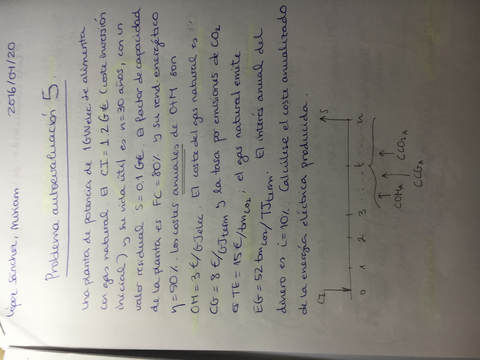 López Sánchez, Miriam 2016/04/20
Problema autoevaluación 5.
Una planta de potencia de 1GWelec se alimenta
con gas natural. El CI=1.2G€ (coste inversión
inicial) y su vida útil es n=30 años, con un
valor residual S=0,1G€. El factor de capacidad
de la planta es FC=80% y su rend. energético
η=50%. Los costes anuales de O+M son
OM=3€/GJelec. El coste del gas natural es
CG=8€/GJterm y la tasa por emisiones de CO2
es TE=15€/tmCO2; el gas natural emite
EG=52tmCO2/TJterm. El interés anual del
dinero es i=10%. Calcúlese el coste anualizado
de la energía eléctrica producida.
S
0 1 2 3 ..... t ..... n
CI
COMA CCO2A
CCGA